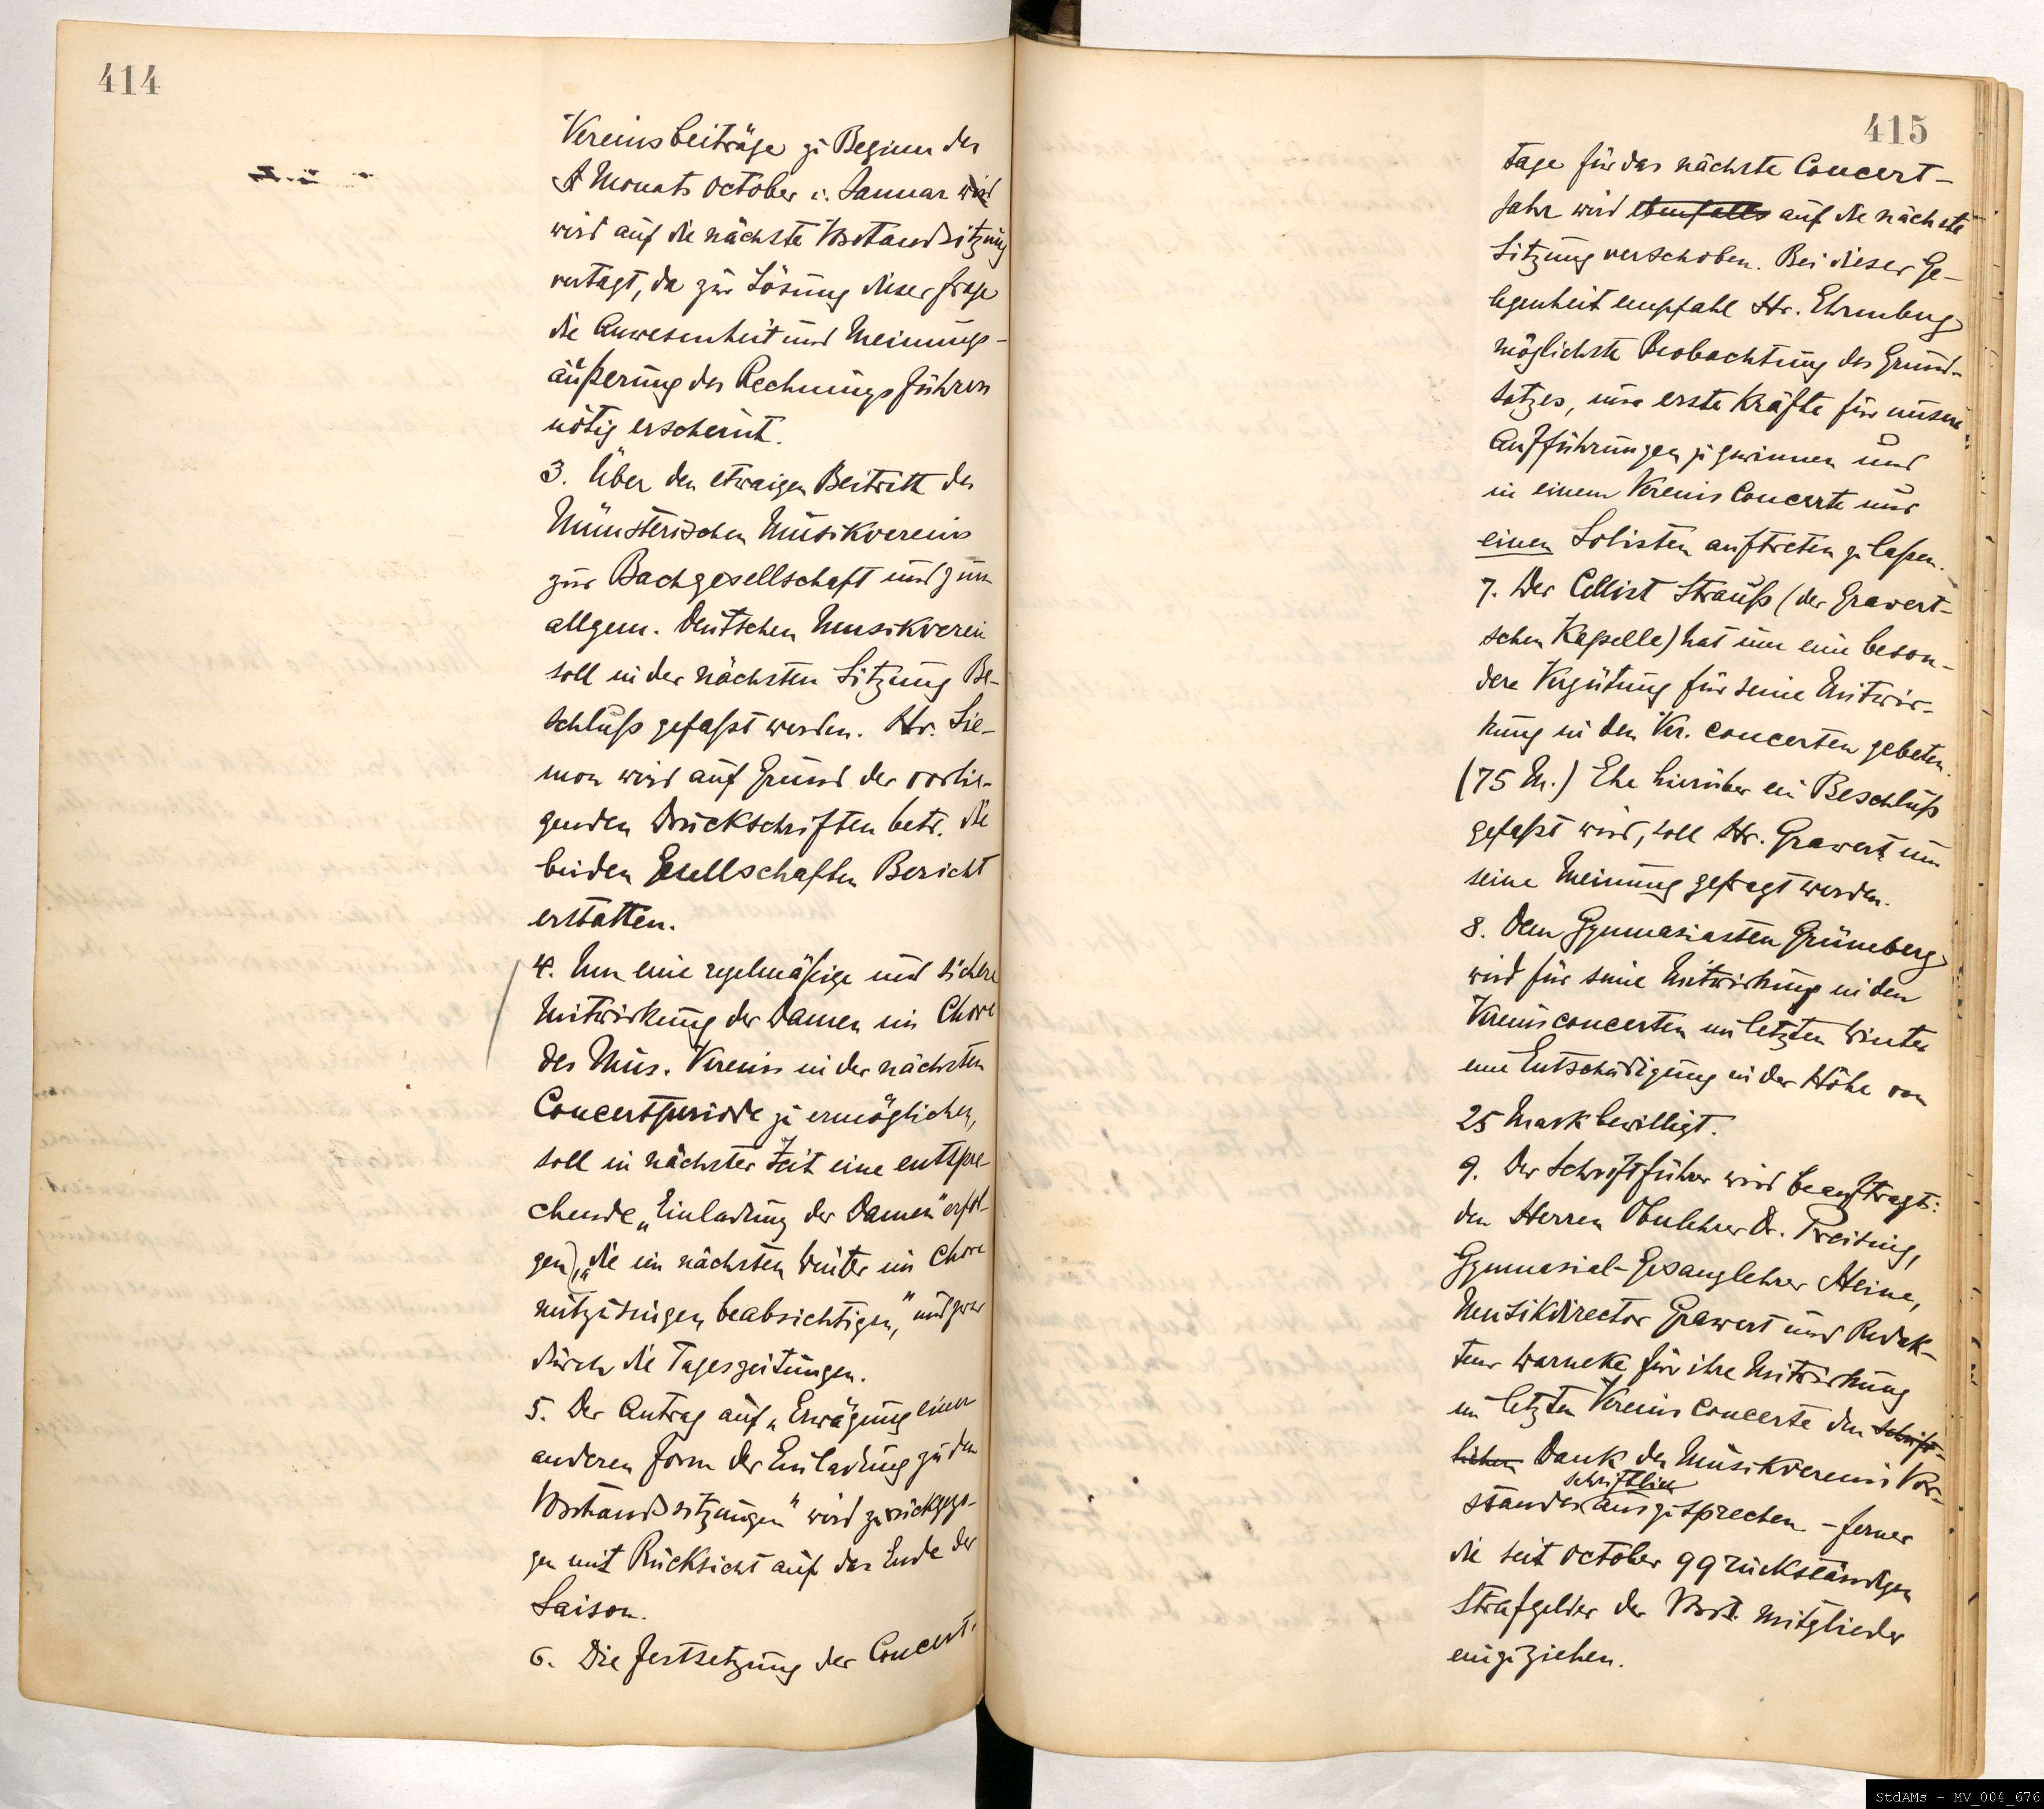 414
Vereinsbeiträge zu Beginn des
Monats October u. Januar wird
wird auf die nächste Vorstandssitzung
vertagt, da zur Lösung dieser Frage
die Anwesenheit und Meinungs-
äußerung des Rechnungsführers
nötig erscheint.
3. Über den etwaigen Beitritt des
Münsterischen Musikvereins
zur Bachgesellschaft und zum
allgem. Deutschen Musikverein
soll in der nächsten Sitzung Be-
schluß gefaßt werden. Hr. Sie-
mon wird auf Grund der vorlie-
genden Druckschriften betr. die
beiden Gesellschaften Bericht
erstatten.
4. Um eine regelmäßige und sichere
Mitwirkung der Damen im Chore
des Mus. Vereins in der nächsten
Concertperiode zu ermöglichen,
soll in nächster Zeit eine entspre-
chende „Einladung der Damen" erfol-
gen), „die im nächsten Winter im Chore
mitzusingen beabsichtigen," und zwar
durch die Tageszeitungen.
5. Der Antrag auf „Erwägung einer
anderen Form der Einladung zu den
Vorstandssitzungen" wird zurückgezo-
gen mit Rücksicht auf das Ende der
Saison.
6. Die Festsetzung der Concert-
415
tage für das nächste Concert-
jahr wird ebenfalls auf die nächste
Sitzung verschoben. Bei dieser Ge-
legenheit empfahl Hr. Ehrenberg
möglichste Beobachtung des Grund-
satzes, nur erste Kräfte für unsere
Aufführungen zu gewinnen und
in einem Vereins Concerte nur
einen Solisten auftreten zu laßen.
7. Der Cellist Strauß (der Grawert-
schen Kapelle) hat um eine beson-
dere Vergütung für seine Mitwir-
kung in den Ver. concerten gebeten.
(75 M.) Ehe hierüber ein Beschluß
gefaßt wird, soll Hr. Grawert um
seine Meinung gefragt werden.
8. Dem Gymnasiasten Grüneberg
wird für seine Mitwirkung in den
Vereinsconcerten im letzten Winter
eine Entschädigung in der Höhe von
25 Mark bewilligt.
9. Der Schriftführer wird beauftragt:
den Herren Oberlehrer Dr. Preising,
Gymnasial-Gesanglehrer Heine,
Musikdirector Grawert und Redak-
teur Warneke für ihre Mitwirkung
im letzten Vereins Concerte den schrift-
lichen Dank des Musikvereins Vor-
schriftlich
standes auszusprechen – ferner
die seit October 99 rückständigen
Strafgelder der Vorst. mitglieder
einzuziehen.
StdAMs - MV_004_676